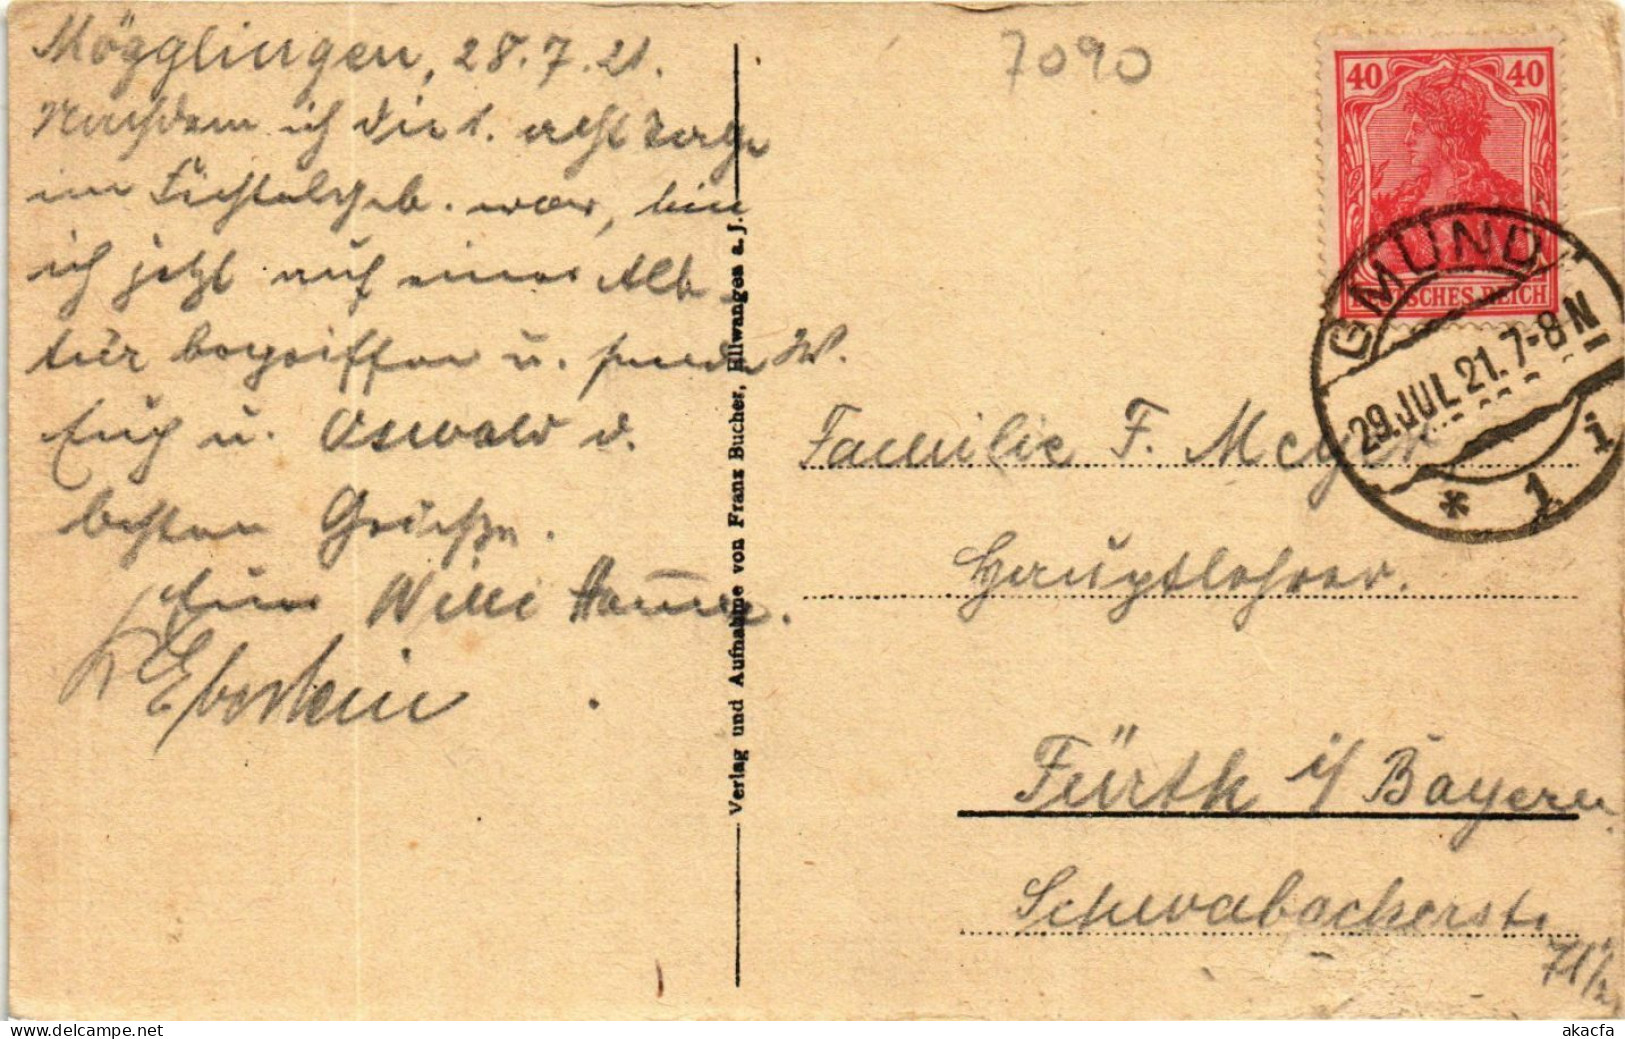 Mögglingen, 28.7.21.
Nachdem ich die l. acht Tage
im Fichtelgeb. war, bin
ich jetzt auf einer Alb-
tur begriffen u. sende W.
Euch u. Oswald d.
besten Grüße.
Euer Willi
Eberstein
Verlag und Aufnahme von Franz Bucher, Ellwangen a. J.
7090
40 40
DEUTSCHES REICH
GMÜND
29.JUL.21.7-8N
* 1 i
Familie F. Meyer
Hauptlehrer.
Fürth i/ Bayern
Schwabacherstr.
71/2
akacfa